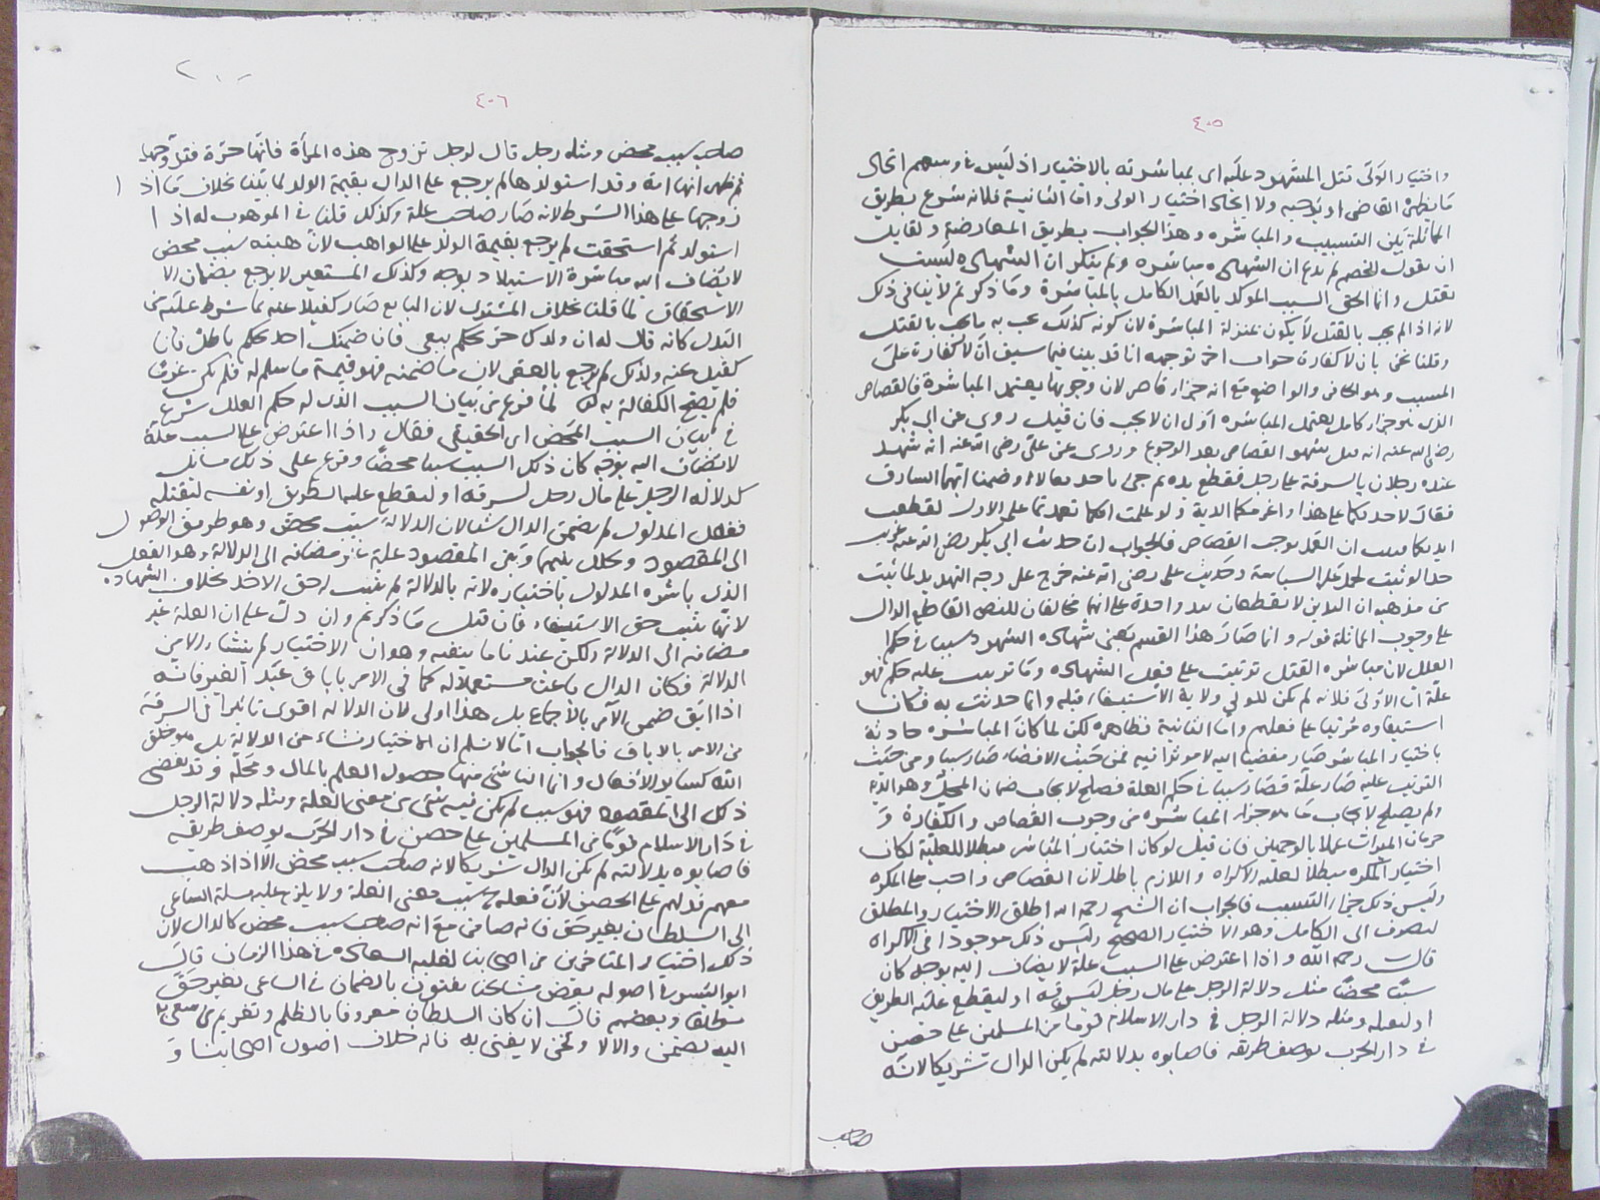 ٤٠٥
واختيار الولى قتل المشهود عليه اى بمباشرته بالاختيار اذ ليس فى وسعهم ايجاد
القاضى او يوجبه ولا ايجاد اختيار الولى واما الثانية فلانه شرع بطريق
المماثلة بين التسبيب والمباشرة وهذا الجواب بطريق المعارضة ولقايل
ان يقول الخصم لم يدع ان الشهادة مباشرة ولم ينكر ان الشهادة ليست
بقتل وانما الحق السبب الموكد بالعمد الكامل بالمباشرة وما ذكرتم لا ينافى ذلك
لانه اذا لم يجب بالقتل لا يكون بمنزلة المباشرة لان كونه كذلك يجب به ما يجب بالقتل
وقلنا نحن بان لا كفارة جواب اخر توجيهه انا قد بينا فيما سبق ان لا كفارة على
المسبب وهو الحافر والواضع مع انه جزاء قاصر لان وجوبها يعتمد المباشرة فالقصاص
الذى هو جزاء كامل يعتمد المباشرة اولى ان لا يجب فان قيل روى عن ابى بكر
رضى الله عنه انه شهود القصاص بعد الرجوع وروى عن على رضى الله عنه انه شهد
عنده رجلان بالسرقة على رجل فقطع يده ثم جى باحد فقالا وهمنا انما السارق
فقال لا اصدقكما على هذا واغرمكما الدية ولو علمت انكما تعمدتما على الاول لقطعت
ايديكما ان العمد يوجب القصاص فالجواب ان حديث ابى بكر رضى الله عنه غريب
لو ثبت لحمل على السياسة وحديث على رضى الله عنه خرج على وجه التهديد لما ثبت
من مذهبه ان اليدين لا يقطعان بيد واحدة على انهما مخالفان للنص القاطع الدال
على وجوب المماثلة قوله وانما صار هذا القسم يعنى شهادة الشهود سببا فى حكم
العلل لان مباشرة القتل ترتبت على قول الشهادة وما ترتب عليه حكم فهو
علة اما الاولى فلانه لم يكن للولى ولاية الاستيفاء قبله وانما حدثت به فكان
استيفاوه مرتبا على فعلهم واما الثانية فظاهرة لكن لما كان المباشرة حادثة
باختيار المباشر صار مفضيا اليه لا موثرا فيه فمن حيث الافضاء صار سببا ومن حيث
الترتيب عليه صار علة فصار سببا فى حكم العلة فصلح لايجاب ضمان المحل وهو الدية
ولم يصلح لايجاب ما هو جزاء المباشرة من وجوب القصاص والكفارة و
حرمان الميراث عملا بالوجهين فان قيل لو كان اختيار المباشر مبطلا للعلية لكان
اختيار المكره مبطلا لعلية الاكراه واللازم باطل لان القصاص واجب على المكره
وليس ذلك جزاء التسبيب فالجواب ان الشيخ رحمه الله اطلق الاختيار والمطلق
ينصرف الى الكامل وهو الاختيار الصحيح وليس ذلك موجودا فى الاكراه
قال رحمه الله واذا اعترض على السبب علة لا يضاف اليه بوجه كان
سببا محضا مثل دلالة الرجل على مال رجل ليسرقه او ليقطع عليه الطريق
او ليقتله ومثله دلالة الرجل فى دار الاسلام قوما من المسلمين على حصن
فى دار الحرب بوصف طريقه فاصابوه بدلالته لم يكن الدال شريكا لانه
صاحب
٤٠٦
صاحب سبب محض ومثله رجل قال لرجل تزوج هذه المرأة فانها حرة فتزوجها
ثم ظهر انها امة وقد استولدها لم يرجع على الدال بقيمة الولد لما بينا بخلاف ما اذا
زوجها على هذا الشرط لانه صار صاحب علة وكذلك قلنا فى الموهوب له اذا
استولد ثم استحقت لم يرجع بقيمة الولد على الواهب لان هبته سبب محض
لا يضاف اليه مباشرة الاستيلاد بوجه وكذلك المستعير لا يرجع بضمان
الاستحقاق لما قلنا بخلاف المشترى لان البايع صار كفيلا عنه بما شرط عليه من
البدل كانه قال له ان ولدك حر بحكم بيعى فان ضمنك احد بحكم باطل فانا
كفيل عنه ولذلك لم يرجع بالعقر لان ما ضمنه فهو قيمة ما سلم له فلم يكن غرما
فلم يصح الكفالة به لما فرغ من بيان السبب الذى له حكم العلل شرع
فى بيان السبب المحض اى الحقيقى فقال واذا اعترض على السبب علة
لا يضاف اليه بوجه كان ذلك السبب سببا محضا وفرع على ذلك مسائل
كدلالة الرجل على مال رجل ليسرقه او ليقطع عليه الطريق او نفسه ليقتله
ففعل المدلول لم يضمن الدال شيا لان الدلالة سبب محض وهو طريق الوصول
الى المقصود وتخلل بينها وبين المقصود علة غير مضافة الى الدلالة وهو الفعل
الذى باشره المدلول باختياره لانه بالدلالة لم يثبت له حق الاخذ بخلاف الشهادة
لانها تثبت حق الاستيفاء فان قيل ما ذكرتم وان دل على ان العلة غير
مضافة الى الدلالة لكن عندنا ما ينفيه وهو ان الاختيار لم ينشاء الا من
الدلالة فكان الدال مستعملا له كما فى الامر باباق عبد الغير فانه
اذا ابق ضمن الآمر بالاجماع بل هذا اولى لان الدلالة اقوى تاثيرا فى السرقة
من الامر بالاباق فالجواب انا لا نسلم ان الاختيار نشاء من الدلالة بل هو خلق
الله كساير الافعال وانما الناشى منها حصول العلم بالمال ومحله وقد يفضى
ذلك الى المقصود فهو سبب لم يكن فيه شى من معنى العلة ومثله دلالة الرجل
فى دار الاسلام قوما من المسلمين على حصن فى دار الحرب بوصف طريقه
فاصابوه بدلالته لم يكن الدال شريكا لانه صاحب سبب محض الا اذا ذهب
معهم فدلهم على الحصن لان فعله سبب معنى العلة ولا يلزم عليه مسلة الساعى
الى السلطان بغير حق فانه ضامن مع انه صاحب سبب محض كالدال لان
ذلك اختيار المتاخرين من اصحابنا لغلبة السعاة فى هذا الزمان قال
ابو اليسر فى اصوله بعض مشايخنا يفتون بالضمان فى الساعى بغير حق
مطلقا وبعضهم قال ان كان السلطان معروفا بالظلم وتغريم من سعى به
اليه يضمن والا لا ونحن لا نفتى به فانه خلاف اصول اصحابنا و